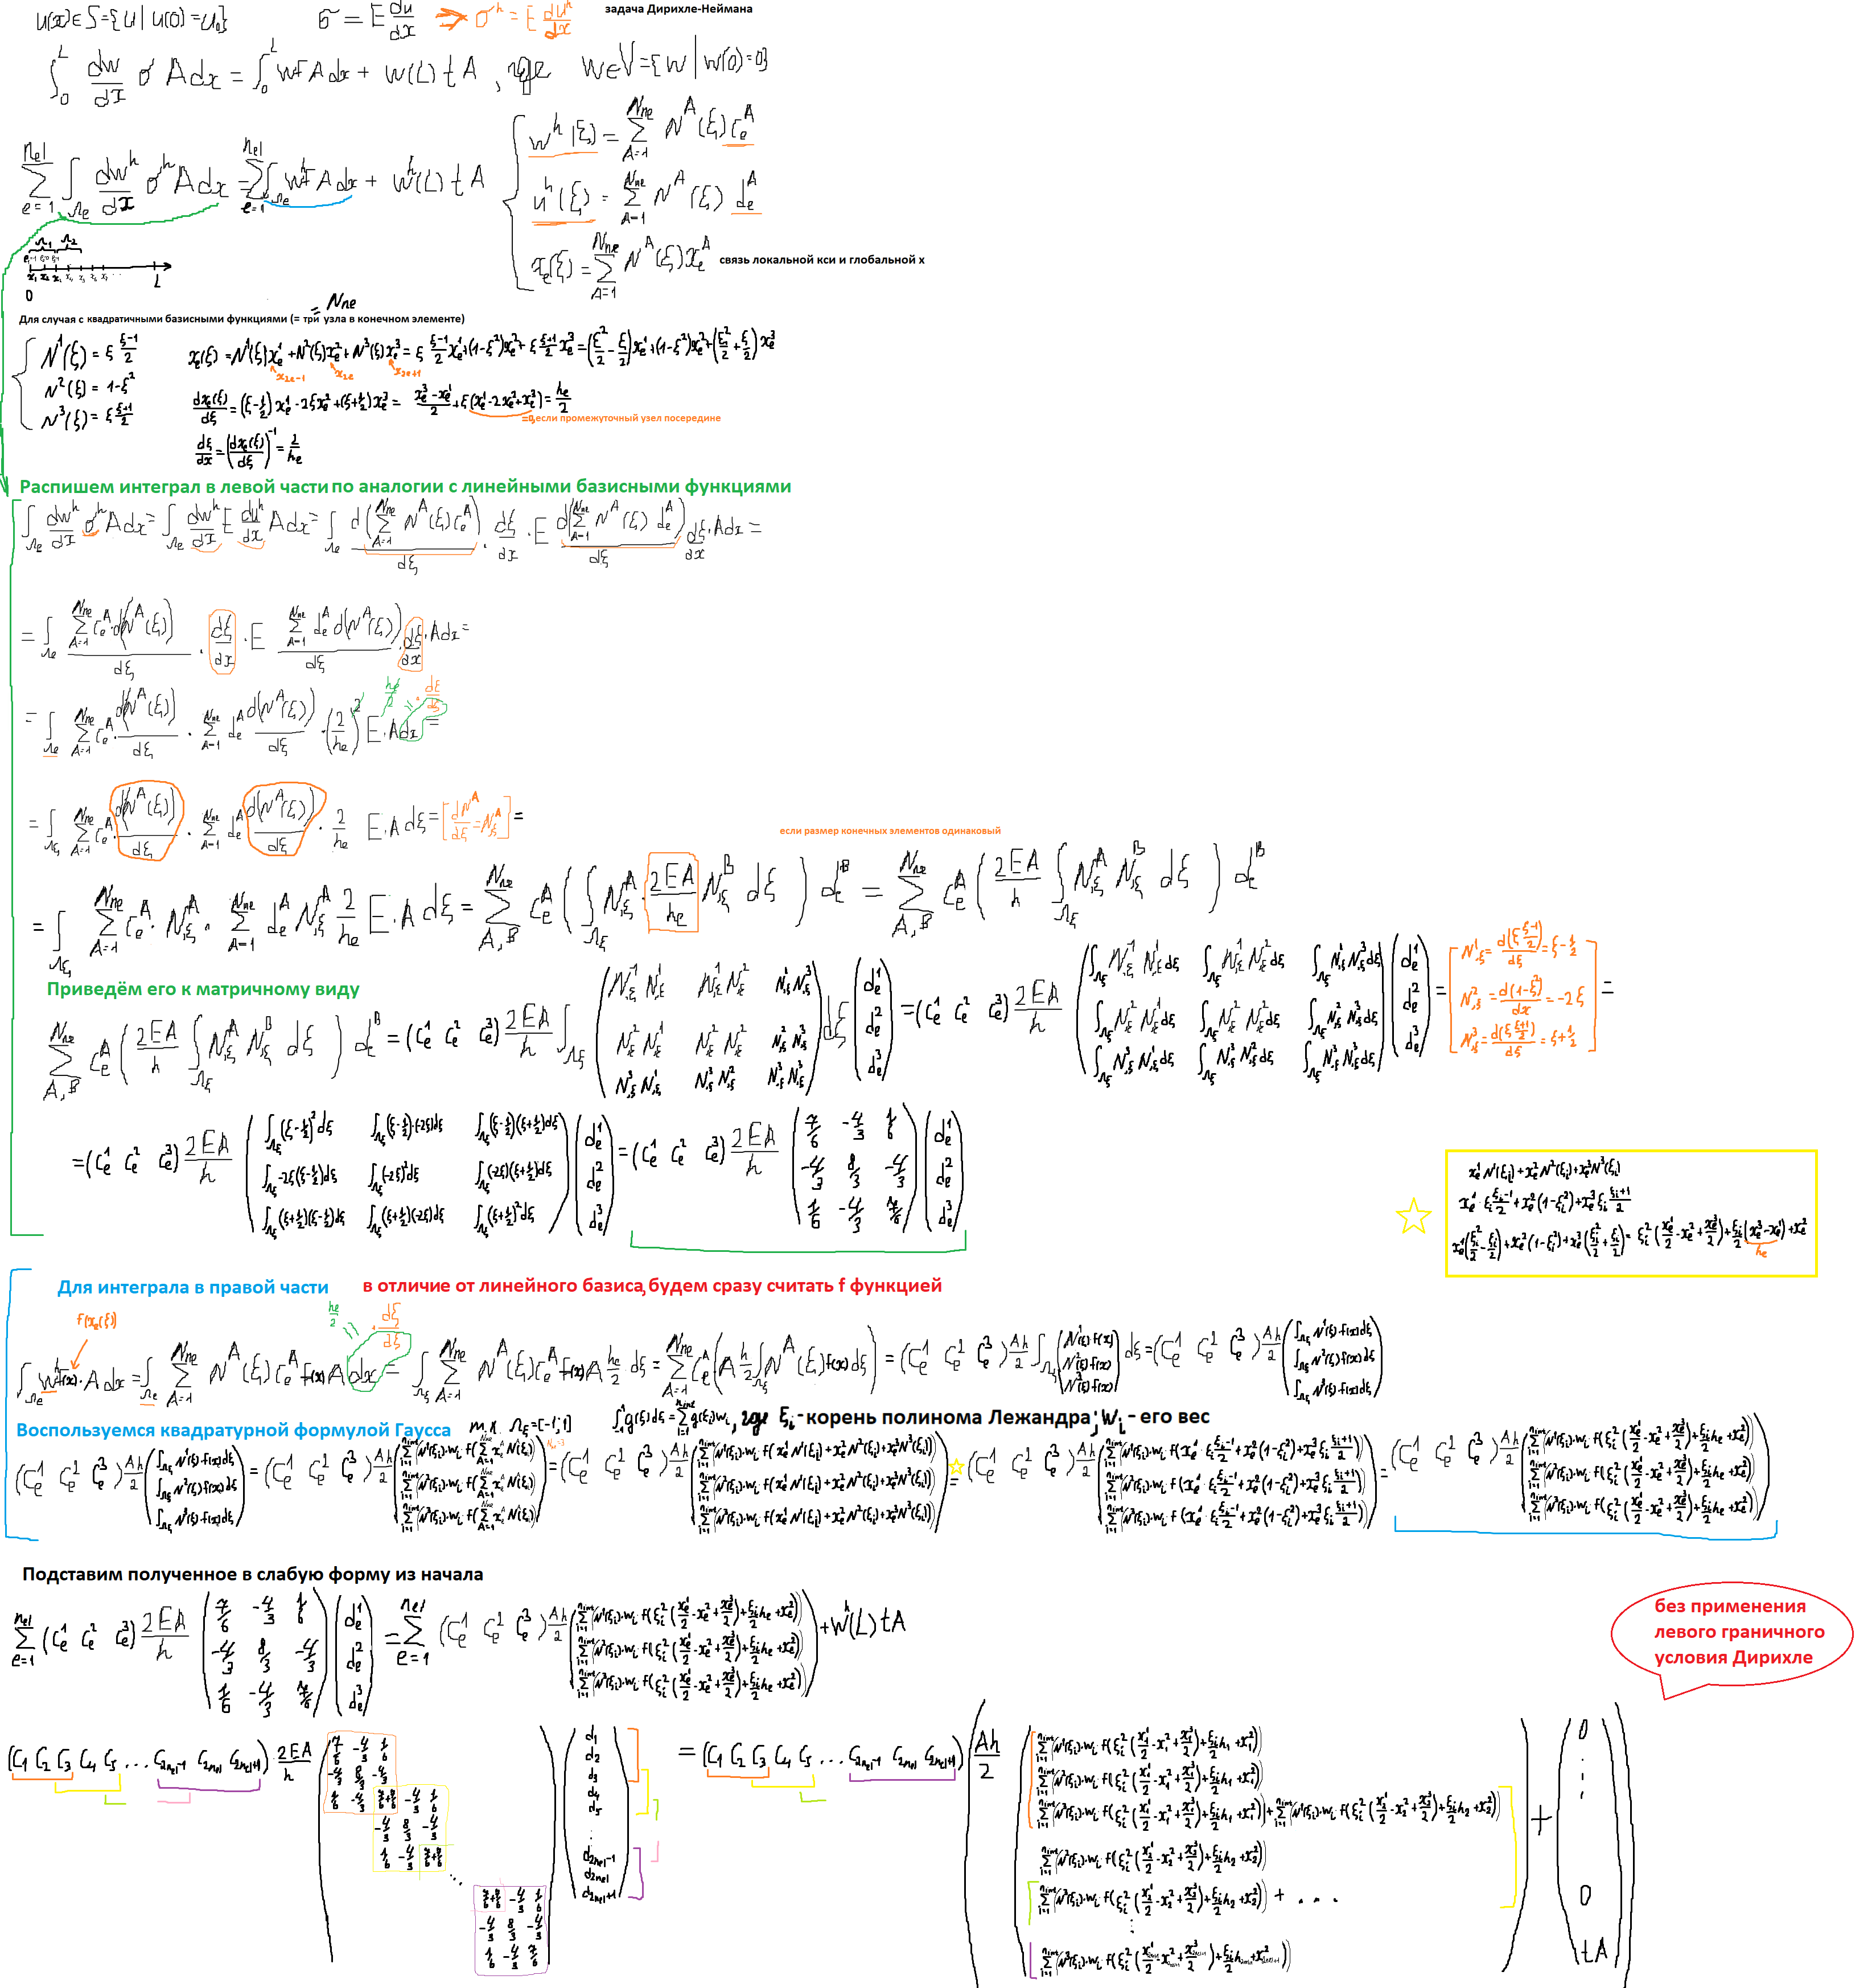 u(x)∈S={u | u(0)=u₀}   σ = E du/dx ⇒ σ^h = E du^h/dx   задача Дирихле-Неймана
∫_0^L dw/dx σ A dx = ∫_0^L w f A dx + w(L) t A , где w∈V={w | w(0)=0}
∑_{e=1}^{nel} ∫_{Ωe} dw^h/dx σ^h A dx = ∑_{e=1}^{nel} ∫_{Ωe} w^h f A dx + w^h(L) t A
w^h(ξ) = ∑_{A=1}^{Nne} N^A(ξ) c_e^A
u^h(ξ) = ∑_{A=1}^{Nne} N^A(ξ) d_e^A
x_e(ξ) = ∑_{A=1}^{Nne} N^A(ξ) x_e^A   связь локальной кси и глобальной x
Ω₁ Ω₂
0 L
= Nne
Для случая с квадратичными базисными функциями (= три узла в конечном элементе)
N¹(ξ) = ξ (ξ-1)/2
N²(ξ) = 1-ξ²
N³(ξ) = ξ (ξ+1)/2
x_e(ξ) = N¹(ξ)x_e¹ + N²(ξ)x_e² + N³(ξ)x_e³ = ξ (ξ-1)/2 x_e¹ + (1-ξ²)x_e² + ξ (ξ+1)/2 x_e³ = (ξ²/2 - ξ/2) x_e¹ + (1-ξ²)x_e² + (ξ²/2 + ξ/2) x_e³
x_{2e-1} x_{2e} x_{2e+1}
dx_e(ξ)/dξ = (ξ-1/2) x_e¹ - 2ξx_e² + (ξ+1/2) x_e³ = (x_e³-x_e¹)/2 + ξ(x_e¹-2x_e²+x_e³) = h_e/2
=0, если промежуточный узел посередине
dξ/dx = (dx_e(ξ)/dξ)^{-1} = 2/h_e
Распишем интеграл в левой части по аналогии с линейными базисными функциями
∫_{Ωe} dw^h/dx σ^h A dx = ∫_{Ωe} dw^h/dx E du^h/dx A dx = ∫_{Ωe} d(∑_{A=1}^{Nne} N^A(ξ) c_e^A)/dξ · dξ/dx · E d(∑_{A=1}^{Nne} N^A(ξ) d_e^A)/dξ dξ/dx · A dx =
= ∫_{Ωe} ∑_{A=1}^{Nne} c_e^A · d(N^A(ξ))/dξ · dξ/dx · E ∑_{A=1}^{Nne} d_e^A d(N^A(ξ))/dξ · dξ/dx · A dx =
h_e/2 · dξ/dξ
= ∫_{Ωe} ∑_{A=1}^{Nne} c_e^A · d(N^A(ξ))/dξ · ∑_{A=1}^{Nne} d_e^A d(N^A(ξ))/dξ · (2/h_e)² E · A dx =
= ∫_{Ωξ} ∑_{A=1}^{Nne} c_e^A · d(N^A(ξ))/dξ · ∑_{A=1}^{Nne} d_e^A d(N^A(ξ))/dξ · 2/h_e E · A dξ = [dN^A/dξ = N_{,ξ}^A] =
если размер конечных элементов одинаковый
= ∫_{Ωξ} ∑_{A=1}^{Nne} c_e^A · N_{,ξ}^A · ∑_{A=1}^{Nne} d_e^A N_{,ξ}^A 2/h_e E · A dξ = ∑_{A,B}^{Nne} c_e^A ( ∫_{Ωξ} N_{,ξ}^A · 2EA/h_e N_{,ξ}^B dξ ) d_e^B = ∑_{A,B}^{Nne} c_e^A ( 2EA/h ∫_{Ωξ} N_{,ξ}^A N_{,ξ}^B dξ ) d_e^B
Приведём его к матричному виду
∑_{A,B}^{Nne} c_e^A ( 2EA/h ∫_{Ωξ} N_{,ξ}^A N_{,ξ}^B dξ ) d_e^B = (c_e¹ c_e² c_e³) 2EA/h ∫_{Ωξ} ( N_{,ξ}¹N_{,ξ}¹ N_{,ξ}¹N_{,ξ}² N_{,ξ}¹N_{,ξ}³ ; N_{,ξ}²N_{,ξ}¹ N_{,ξ}²N_{,ξ}² N_{,ξ}²N_{,ξ}³ ; N_{,ξ}³N_{,ξ}¹ N_{,ξ}³N_{,ξ}² N_{,ξ}³N_{,ξ}³ ) dξ ( d_e¹ ; d_e² ; d_e³ ) = (c_e¹ c_e² c_e³) 2EA/h ( ∫_{Ωξ} N_{,ξ}¹N_{,ξ}¹dξ ∫_{Ωξ} N_{,ξ}¹N_{,ξ}²dξ ∫_{Ωξ} N_{,ξ}¹N_{,ξ}³dξ ; ∫_{Ωξ} N_{,ξ}²N_{,ξ}¹dξ ∫_{Ωξ} N_{,ξ}²N_{,ξ}²dξ ∫_{Ωξ} N_{,ξ}²N_{,ξ}³dξ ; ∫_{Ωξ} N_{,ξ}³N_{,ξ}¹dξ ∫_{Ωξ} N_{,ξ}³N_{,ξ}²dξ ∫_{Ωξ} N_{,ξ}³N_{,ξ}³dξ ) ( d_e¹ ; d_e² ; d_e³ ) =
N_{,ξ}¹ = d(ξ (ξ-1)/2)/dξ = ξ-1/2
N_{,ξ}² = d(1-ξ²)/dx = -2ξ
N_{,ξ}³ = d(ξ (ξ+1)/2)/dξ = ξ+1/2
=
=(c_e¹ c_e² c_e³) 2EA/h ( ∫_{Ωξ}(ξ-1/2)²dξ ∫_{Ωξ}(ξ-1/2)·(-2ξ)dξ ∫_{Ωξ}(ξ-1/2)(ξ+1/2)dξ ; ∫_{Ωξ}-2ξ(ξ-1/2)dξ ∫_{Ωξ}(-2ξ)²dξ ∫_{Ωξ}(-2ξ)(ξ+1/2)dξ ; ∫_{Ωξ}(ξ+1/2)(ξ-1/2)dξ ∫_{Ωξ}(ξ+1/2)(-2ξ)dξ ∫_{Ωξ}(ξ+1/2)²dξ ) ( d_e¹ ; d_e² ; d_e³ ) = (c_e¹ c_e² c_e³) 2EA/h ( 7/6 -4/3 1/6 ; -4/3 8/3 -4/3 ; 1/6 -4/3 7/6 ) ( d_e¹ ; d_e² ; d_e³ )
x_e¹N¹(ξi)+x_e²N²(ξi)+x_e³N³(ξi)
x_e¹ · ξi (ξi-1)/2 + x_e²(1-ξi²)+x_e³ ξi (ξi+1)/2
x_e¹(ξi²/2 - ξi/2)+x_e²(1-ξi²)+x_e³(ξi²/2 + ξi/2) = ξi²(x_e¹/2 - x_e² + x_e³/2) + ξi/2 (x_e³-x_e¹)+x_e²
h_e
Для интеграла в правой части   в отличие от линейного базиса, будем сразу считать f функцией
f(x_e(ξ))   h_e/2 · dξ/dξ
∫_{Ωe} w^h f(x)·A dx = ∫_{Ωe} ∑_{A=1}^{Nne} N^A(ξ) c_e^A f(x) A dx = ∫_{Ωξ} ∑_{A=1}^{Nne} N^A(ξ) c_e^A f(x) A h_e/2 dξ = ∑_{A=1}^{Nne} c_e^A (A h/2 ∫_{Ωξ} N^A(ξ) f(x) dξ) = (c_e¹ c_e² c_e³) Ah/2 ∫_{Ωξ} ( N¹(ξ)·f(x) ; N²(ξ)·f(x) ; N³(ξ)·f(x) ) dξ = (c_e¹ c_e² c_e³) Ah/2 ( ∫_{Ωξ} N¹(ξ)·f(x)dξ ; ∫_{Ωξ} N²(ξ)·f(x)dξ ; ∫_{Ωξ} N³(ξ)·f(x)dξ )
Воспользуемся квадратурной формулой Гаусса   т.к. Ωξ=[-1;1]   ∫_{-1}^1 g(ξ)dξ = ∑_{i=1}^{nint} g(ξi)wi, где ξi - корень полинома Лежандра; Wi - его вес
(c_e¹ c_e² c_e³) Ah/2 ( ∫_{Ωξ} N¹(ξ)·f(x)dξ ; ∫_{Ωξ} N²(ξ)·f(x)dξ ; ∫_{Ωξ} N³(ξ)·f(x)dξ ) = (c_e¹ c_e² c_e³) Ah/2 ( ∑_{i=1}^{nint}(N¹(ξi)·wi·f(∑_{A=1}^{Nne} x_e^A N(ξi))) ; ∑_{i=1}^{nint}(N²(ξi)·wi·f(∑_{A=1}^{Nne} x_e^A N(ξi))) ; ∑_{i=1}^{nint}(N³(ξi)·wi·f(∑_{A=1}^{Nne} x_e^A N(ξi))) ) = (c_e¹ c_e² c_e³) Ah/2 ( ∑_{i=1}^{nint}(N¹(ξi)·wi·f(x_e¹N¹(ξi)+x_e²N²(ξi)+x_e³N³(ξi))) ; ∑_{i=1}^{nint}(N²(ξi)·wi·f(x_e¹N¹(ξi)+x_e²N²(ξi)+x_e³N³(ξi))) ; ∑_{i=1}^{nint}(N³(ξi)·wi·f(x_e¹N¹(ξi)+x_e²N²(ξi)+x_e³N³(ξi))) ) = (c_e¹ c_e² c_e³) Ah/2 ( ∑_{i=1}^{nint}(N¹(ξi)·wi·f(x_e¹·ξi (ξi-1)/2+x_e²(1-ξi²)+x_e³ ξi (ξi+1)/2)) ; ∑_{i=1}^{nint}(N²(ξi)·wi·f(x_e¹·ξi (ξi-1)/2+x_e²(1-ξi²)+x_e³ ξi (ξi+1)/2)) ; ∑_{i=1}^{nint}(N³(ξi)·wi·f(x_e¹·ξi (ξi-1)/2+x_e²(1-ξi²)+x_e³ ξi (ξi+1)/2)) ) = (c_e¹ c_e² c_e³) Ah/2 ( ∑_{i=1}^{nint}(N¹(ξi)·wi·f(ξi²(x_e¹/2-x_e²+x_e³/2)+ξi/2 h_e+x_e²)) ; ∑_{i=1}^{nint}(N²(ξi)·wi·f(ξi²(x_e¹/2-x_e²+x_e³/2)+ξi/2 h_e+x_e²)) ; ∑_{i=1}^{nint}(N³(ξi)·wi·f(ξi²(x_e¹/2-x_e²+x_e³/2)+ξi/2 h_e+x_e²)) )
Подставим полученное в слабую форму из начала
∑_{e=1}^{nel} (c_e¹ c_e² c_e³) 2EA/h ( 7/6 -4/3 1/6 ; -4/3 8/3 -4/3 ; 1/6 -4/3 7/6 ) ( d_e¹ ; d_e² ; d_e³ ) = ∑_{e=1}^{nel} (c_e¹ c_e² c_e³) Ah/2 ( ∑_{i=1}^{nint}(N¹(ξi)·wi·f(ξi²(x_e¹/2-x_e²+x_e³/2)+ξi/2 h_e+x_e²)) ; ∑_{i=1}^{nint}(N²(ξi)·wi·f(ξi²(x_e¹/2-x_e²+x_e³/2)+ξi/2 h_e+x_e²)) ; ∑_{i=1}^{nint}(N³(ξi)·wi·f(ξi²(x_e¹/2-x_e²+x_e³/2)+ξi/2 h_e+x_e²)) ) + w^h(L) t A
без применения
левого граничного
условия Дирихле
(c₁ c₂ c₃ c₄ c₅ ... c_{2nel-1} c_{2nel} c_{2nel+1}) · 2EA/h
7/6 -4/3 1/6
-4/3 8/3 -4/3
1/6 -4/3 7/6+7/6 -4/3 1/6
-4/3 8/3 -4/3
1/6 -4/3 7/6+7/6
...
7/6+7/6 -4/3 1/6
-4/3 8/3 -4/3
1/6 -4/3 7/6
d₁
d₂
d₃
d₄
d₅
⋮
d_{2nel-1}
d_{2nel}
d_{2nel+1}
= (c₁ c₂ c₃ c₄ c₅ ... c_{2nel-1} c_{2nel} c_{2nel+1}) ( Ah/2
∑_{i=1}^{nint}(N¹(ξi)·wi·f(ξi²(x₁¹/2-x₁²+x₁³/2)+ξi/2 h₁+x₁²))
∑_{i=1}^{nint}(N²(ξi)·wi·f(ξi²(x₁¹/2-x₁²+x₁³/2)+ξi/2 h₁+x₁²))
∑_{i=1}^{nint}(N³(ξi)·wi·f(ξi²(x₁¹/2-x₁²+x₁³/2)+ξi/2 h₁+x₁²))+∑_{i=1}^{nint}(N¹(ξi)·wi·f(ξi²(x₂¹/2-x₂²+x₂³/2)+ξi/2 h₂+x₂²))
∑_{i=1}^{nint}(N²(ξi)·wi·f(ξi²(x₂¹/2-x₂²+x₂³/2)+ξi/2 h₂+x₂²))
∑_{i=1}^{nint}(N³(ξi)·wi·f(ξi²(x₂¹/2-x₂²+x₂³/2)+ξi/2 h₂+x₂²)) + ...
⋮
+
0
⋮
0
tA